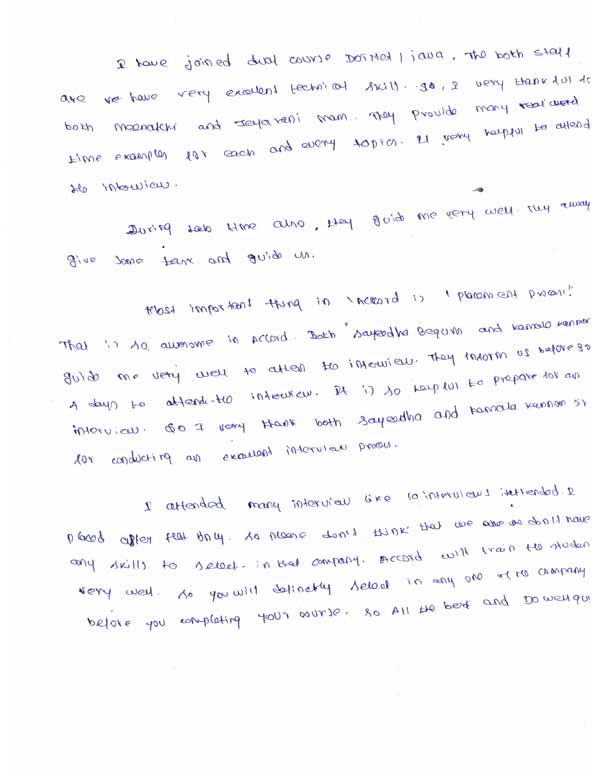 I have joined dual course DotNet / java. The both staff
are ve have very excellent technical skill. So, I very thankful to
both Meenatchi and Jeyarani mam. They provide many real word
time examples for each and every topics. It very helpful to attend
the interview.
During Lab time also, they guid me very well. They
give some task and guide us.
Most important thing in 'Accord is 'placement process'.
That is so, awesome in Accord. Both Sayeedha Begum and Kamala kannan
guide me very well to atten the interview. They inform us before 3 or
4 days to attend the interview. It is so helpful to prepare for an
interview. So I very thank both Sayeedha and Kamala Kannan
for conducting an excellent interview process.
I attended many interview like 10 interviews attended. I
placed after that only. So please don't think that we are don't have
any skills to select in that company. Accord will train the studen
very well. So you will definetly select in any one of the company
before you completing your course. So All the best and Do well